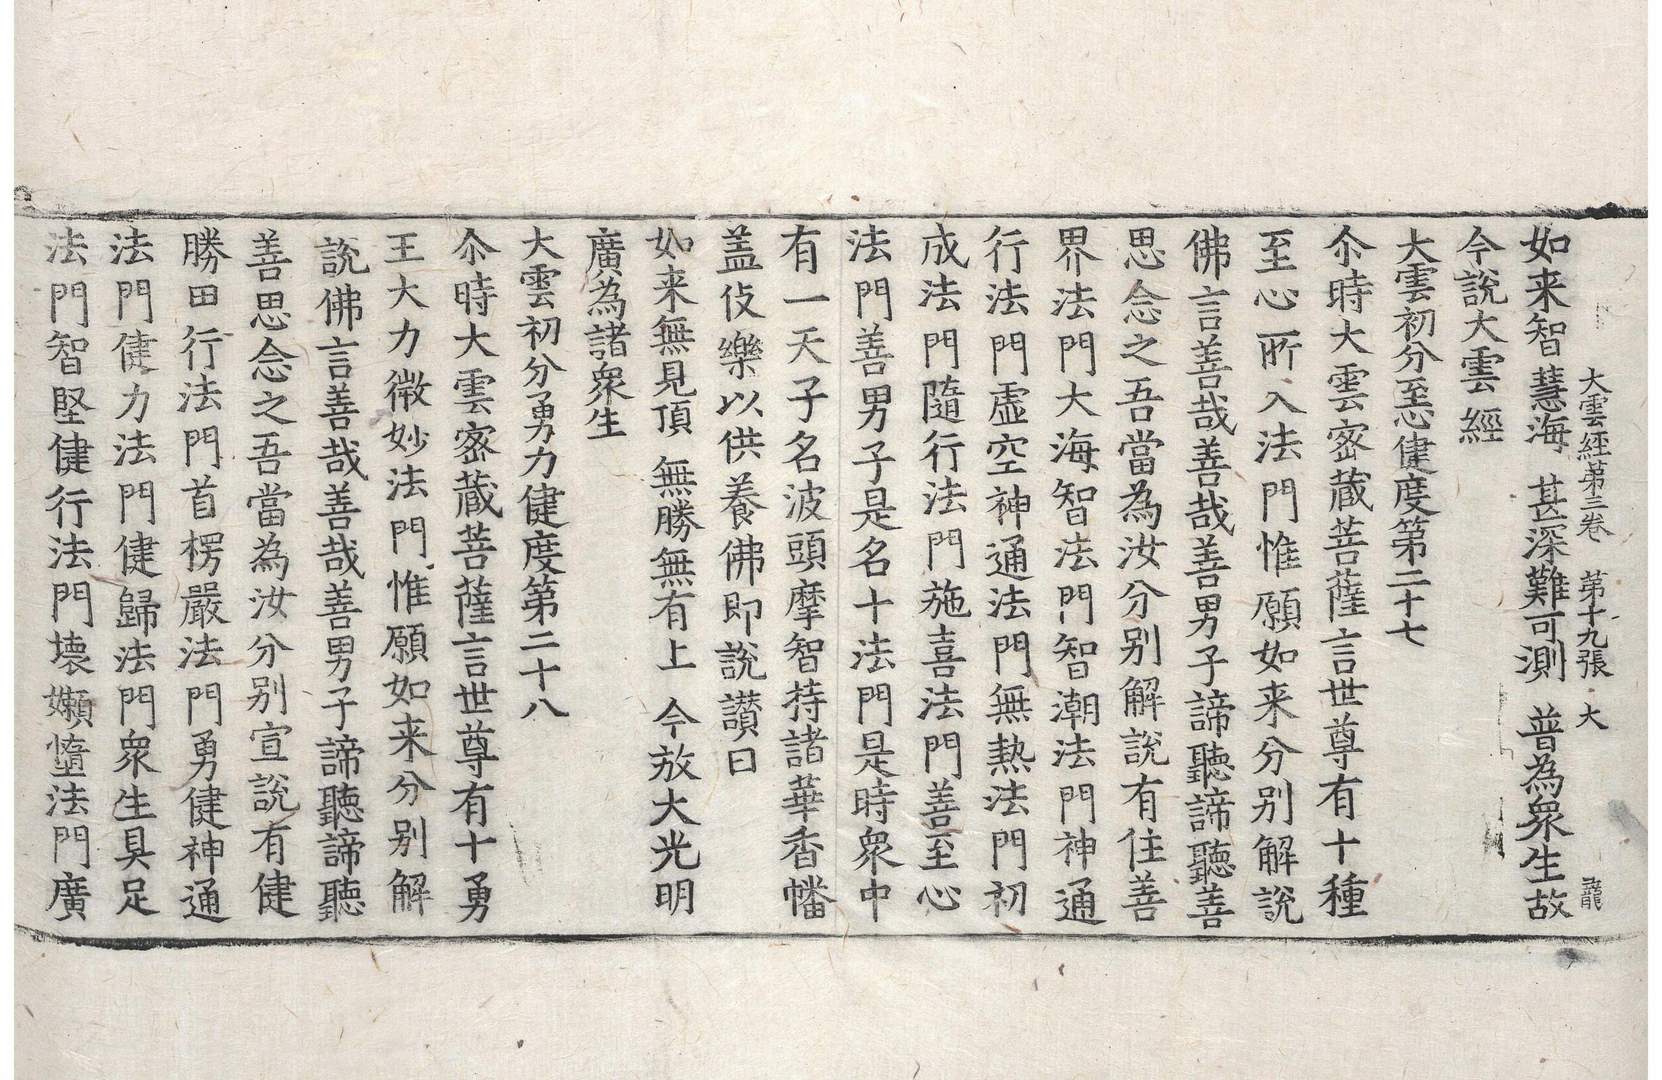 大雲經第三卷　第十九張　大　龍
如来智慧海　甚深難可測　普為衆生故
今說大雲經
大雲初分至心健度第二十七
尒時大雲宻藏菩薩言世尊有十種
至心所入法門惟願如来分别解說
佛言善哉善哉善男子諦聽諦聽善
思念之吾當為汝分别解說有住善
界法門大海智法門智潮法門神通
行法門虚空神通法門無熱法門初
成法門隨行法門施喜法門善至心
法門善男子是名十法門是時衆中
有一天子名波頭摩智持諸華香幡
盖伎樂以供養佛即說讃曰
如来無見頂　無勝無有上　今放大光明
廣為諸衆生
大雲初分勇力健度第二十八
尒時大雲宻藏菩薩言世尊有十勇
王大力微妙法門惟願如来分别解
說佛言善哉善哉善男子諦聽諦聽
善思念之吾當為汝分别宣說有健
勝田行法門首楞嚴法門勇健神通
法門健力法門健歸法門衆生具足
法門智堅健行法門壊嬾墮法門廣